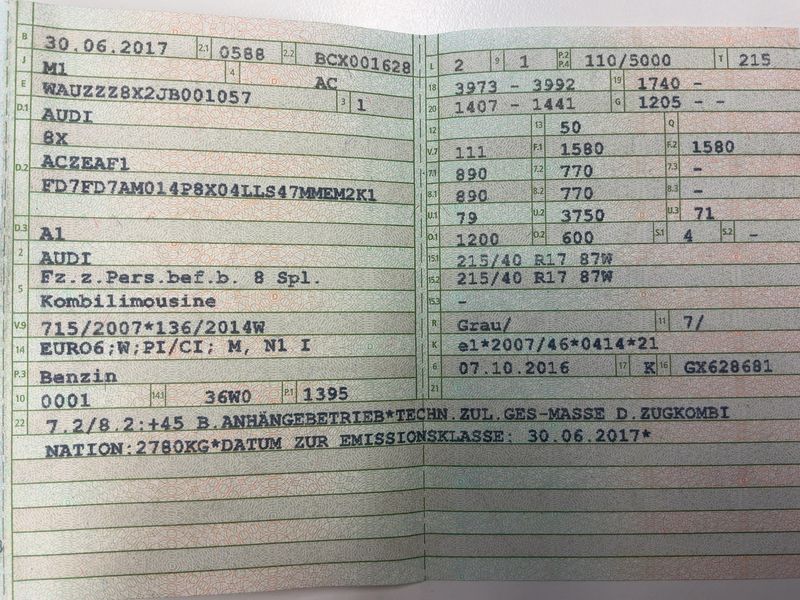 B 30.06.2017 2.1 0588 2.2 BCX001628
J M1 4 AC
E WAUZZZ8X2JB001057 3 1
D.1 AUDI
8X
D.2 ACZEAF1
FD7FD7AM014P8X04LLS47MMEM2K1
D.3 A1
2 AUDI
5 Fz.z.Pers.bef.b. 8 Spl.
Kombilimousine
V.9 715/2007*136/2014W
14 EURO6;W;PI/CI; M, N1 I
P.3 Benzin
10 0001 14.1 36W0 P.1 1395
L 2 9 1 P.2 P.4 110/5000 T 215
18 3973 - 3992 19 1740 -
20 1407 - 1441 G 1205 - -
12 13 50 Q
V.7 111 F.1 1580 F.2 1580
7.1 890 7.2 770 7.3 -
8.1 890 8.2 770 8.3 -
U.1 79 U.2 3750 U.3 71
O.1 1200 O.2 600 S.1 4 S.2 -
15.1 215/40 R17 87W
15.2 215/40 R17 87W
15.3 -
R Grau/ 11 7/
K e1*2007/46*0414*21
6 07.10.2016 17 K 16 GX628681
21
22 7.2/8.2:+45 B.ANHÄNGEBETRIEB*TECHN.ZUL.GES-MASSE D.ZUGKOMBI
NATION:2780KG*DATUM ZUR EMISSIONSKLASSE: 30.06.2017*